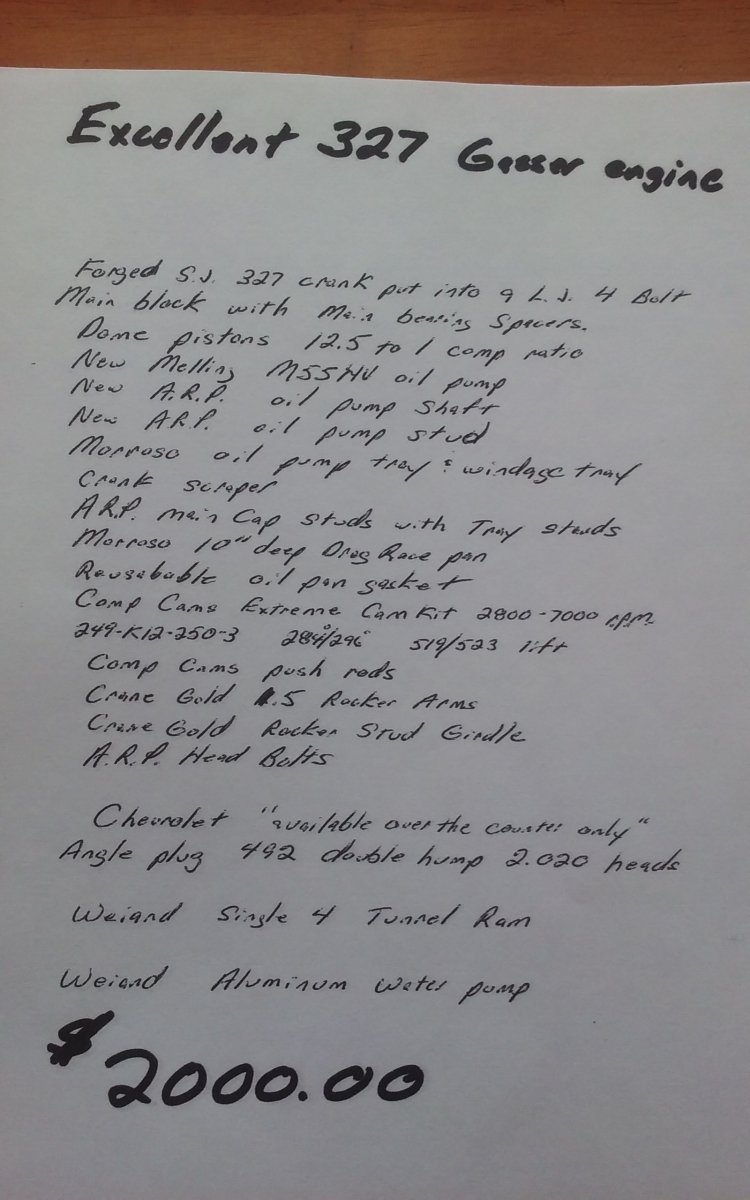 Excellent 327 Gasser engine
Forged S.J. 327 crank put into a L.J. 4 Bolt
Main block with Main bearing Spacers.
Dome pistons 12.5 to 1 comp ratio
New Melling M55HV oil pump
New A.R.P. oil pump Shaft
New A.R.P. oil pump stud
Morroso oil pump tray & windage tray
Crank scraper
A.R.P. main Cap Studs with Tray studs
Morroso 10" deep Drag Race pan
Reusebable oil pan gasket
Comp Cams Extreme Cam Kit 2800-7000 r.p.m.
249-K12-250-3 284°/296° 519/523 lift
Comp Cams push rods
Crane Gold 1.5 Rocker Arms
Crane Gold Rocker Stud Girdle
A.R.P. Head Bolts
Chevrolet "available over the counter only"
Angle plug 492 double hump 2.020 heads
Weiand Single 4 Tunnel Ram
Weiand Aluminum water pump
$2000.00